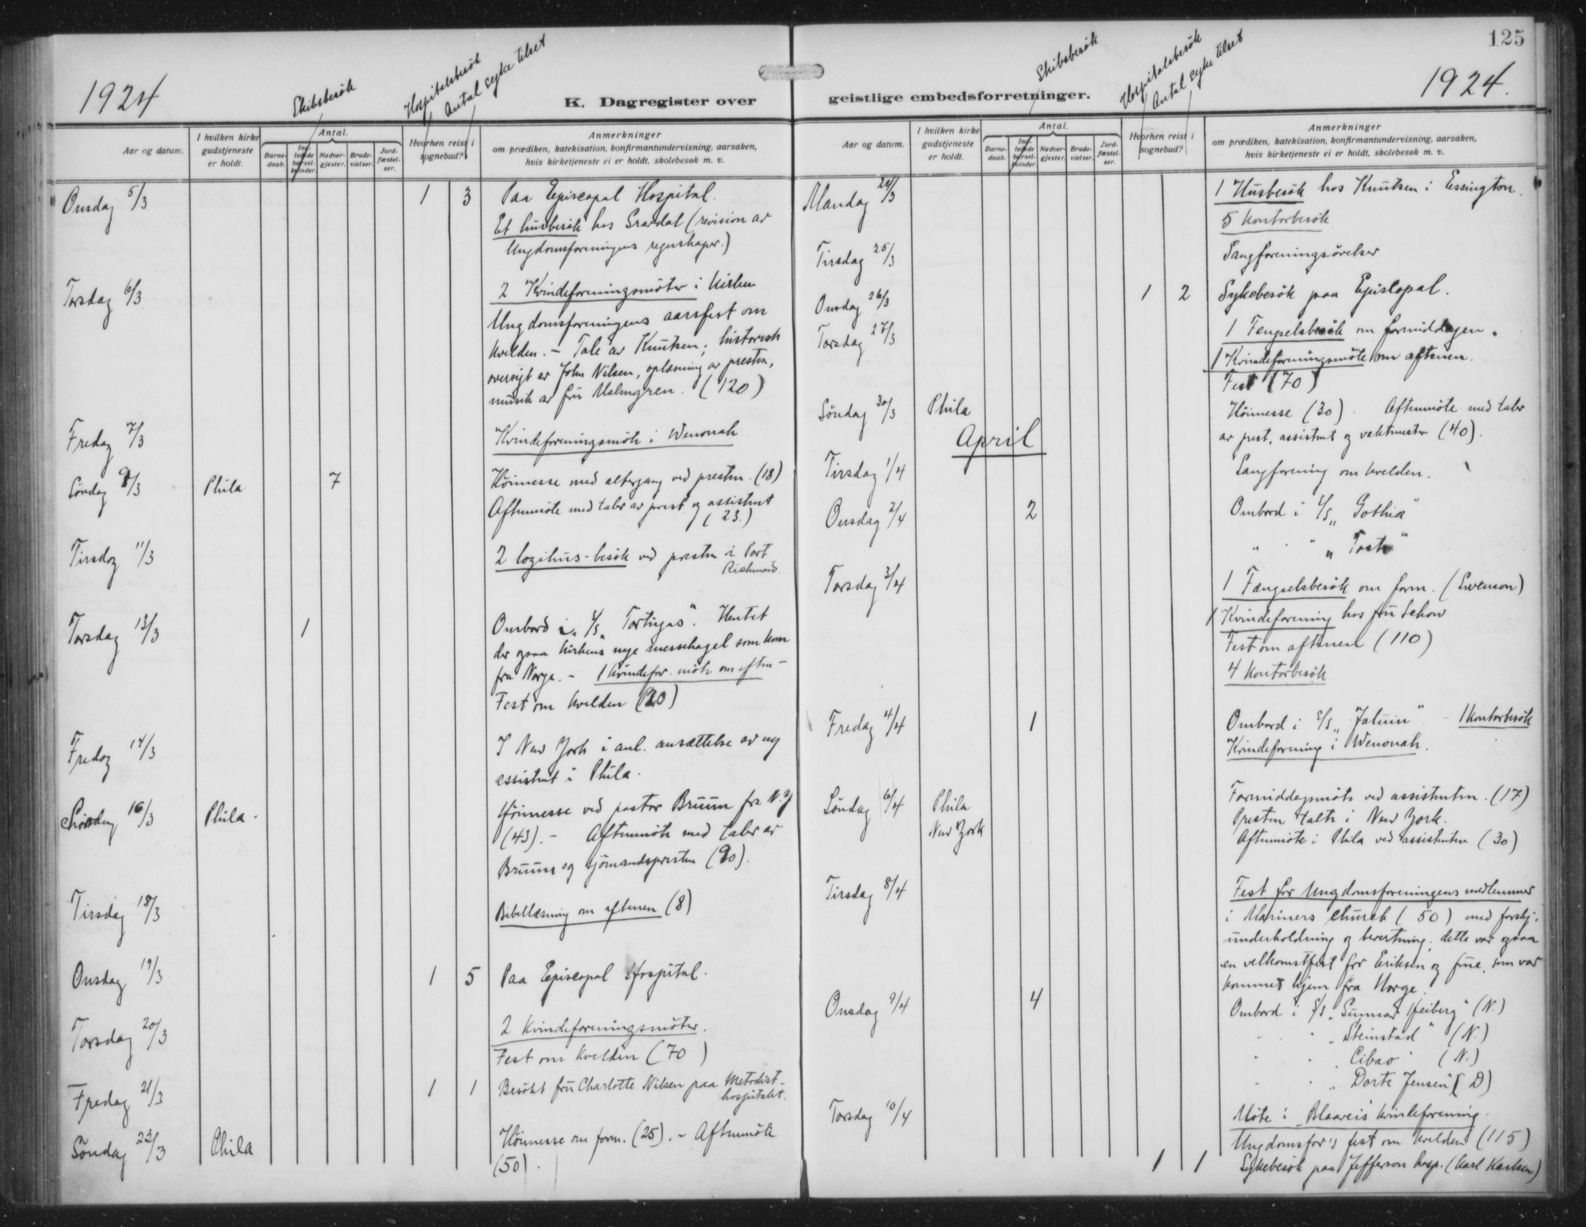 1924
Skibsbesök
Hospitalsbesök
Antal syke tilset
K. Dagregister over
Aar og datum.
I hvilken kirke gudstjeneste er holdt.
Antal.
Barne-daab.
Indledede barselkvinder.
Nadver-gjester.
Brude-vielser.
Jord-fæstelser.
Hvorhen reist i sognebud?
Anmerkninger
om prædiken, katekisation, konfirmantundervisning, aarsaken,
hvis kirketjeneste ei er holdt, skolebesøk m. v.
Onsdag 5/3 1 3 Paa Episcopal Hospital.
Et husbesök hos Svardal (revision av
Ungdomsforeningens regnskaper.)
Torsdag 6/3 2 Kvindeforeningsmöter i Kirken
Ungdomsforeningens aarsfest om
kvelden. – Tale av Knutsen; historisk
oversigt av John Nilsen, oplæsning av presten,
musik av fru Malmgren. (120)
Fredag 7/3 Kvindeforeningsmöte i Wenonah
Söndag 9/3 Phila 7 Höimesse med altergang ved presten. (18)
Aftenmöte med taler av prest og assistent
(23.)
Tirsdag 11/3 2 logihus-besök ved presten i Port
Richmond
Torsdag 13/3 1 Ombord i S/S "Tortugas". Hentet
der ogsaa kirkens nye messehagel som kom
fra Norge. – 1 Kvindefor. möte om aften –
Fest om kvelden
Fredag 14/3 I New York i anl. ansættelse av ny
assistent i Phila.
Söndag 16/3 Phila. Höimesse ved pastor Bruun fra N.Y
(43). – Aftenmöte med taler av
Bruun og sjömandspresten (90).
Tirsdag 18/3 Bibellæsning om aftenen (8)
Onsdag 19/3 1 5 Paa Episcopal Hospital.
Torsdag 20/3 2 Kvindeforeningsmöter.
Fest om kvelden (70)
Fredag 21/3 1 1 Besökt fru Charlotte Nilsen paa Metodist-
hospitalet.
Söndag 23/3 Phila Höimesse om form. (25). – Aftenmöte
(50).
125
1924.
Skibsbesök
Hospitalsbesök
Antal syke tilset
geistlige embedsforretninger.
Aar og datum.
I hvilken kirke gudstjeneste er holdt.
Antal.
Barne-daab.
Indledede barselkvinder.
Nadver-gjester.
Brude-vielser.
Jord-fæstelser.
Hvorhen reist i sognebud?
Anmerkninger
om prædiken, katekisation, konfirmantundervisning, aarsaken,
hvis kirketjeneste ei er holdt, skolebesøk m. v.
Mandag 24/3 1 Husbesök hos Knutsen i Essington.
5 Kontorbesök
Tirsdag 25/3 Sangforeningsövelser
Onsdag 26/3 1 2 Sykebesök paa Episcopal.
Torsdag 27/3 1 Fengselsbesök om formiddagen.
1 Kvindeforeningsmöte om aftenen.
Fest (70)
Söndag 30/3 Phila Höimesse (30). Aftenmöte med taler
av prest, assistent og vaktmester (40).
April
Tirsdag 1/4 Sangforening om kvelden.
Onsdag 2/4 2 Ombord i S/S "Gothia"
" " " "Tosto"
Torsdag 3/4 1 Fængselsbesök om form. (Swenson)
1 Kvindeforening hos fru Schow
Fest om aftenen (110)
4 Kontorbesök
Fredag 4/4 1 Ombord i S/S "Jaluin" – 1 Kontorbesök
Kvindeforening i Wenonah.
Söndag 6/4 Phila Formiddagsmöte ved assistenten. (17)
New York Presten talte i New York.
Aftenmöte i Phila ved assistenten (30)
Tirsdag 8/4 Fest for Ungdomsforeningens medlemmer
i Mariners Church (50) med forskj.
underholdning og bevertning; dette var ogsaa
en velkomstfest for Eriksen og frue, som var
kommet hjem fra Norge.
Onsdag 9/4 4 Ombord i S/S "Gunnar Heiberg" (N.)
" " "Steinstad" (N.)
" " "Cibao" (N.)
" " "Dorte Jensen" (D)
Torsdag 10/4 Möte i "Blaaveis" kvindeforening.
Ungdomsfor's fest om kvelden (115)
1 1 Sykebesök paa Jefferson hosp. (Karl Karlsen)